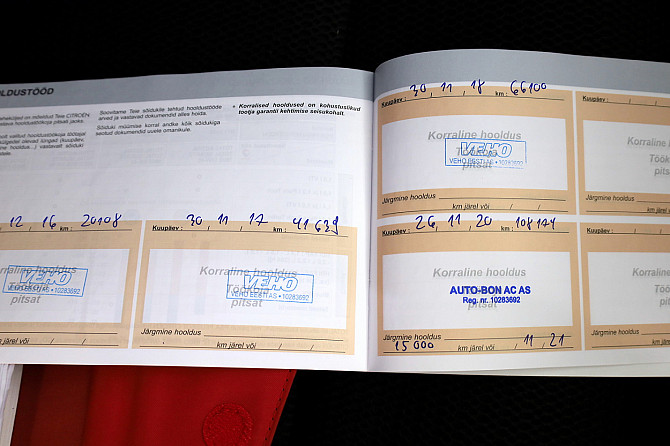 OLDUSTÖÖD
Soovitame Teie sõidukile tehtud hooldustööde
arved ja vastavad dokumendid alles hoida.
Sõiduki müümise korral andke kõik sõidukiga
seotud dokumendid uuele omanikule.
• Korralised hooldused on kohustuslikud
tootja garantii kehtimise seisukohalt.
12, 16 km: 20108
Korraline hooldus
Töökoja
pitsat
VEHO
VEHO EESTI AS • 10283692
Järgmine hooldus
km järel või / /
Kuupäev: 30, 11, 17 km: 41639
Korraline hooldus
Töökoja
pitsat
VEHO
VEHO EESTI AS • 10283692
Järgmine hooldus
km järel või / /
Kuupäev: 30, 11, 18 km: 66100
Korraline hooldus
Töökoja
pitsat
VEHO
VEHO EESTI AS • 10283692
Järgmine hooldus
km järel või / /
Kuupäev:
Korraline
Töök
pitsa
Järgmine hooldus
km järel
Kuupäev: 26, 11, 20 km: 108174
Korraline hooldus
AUTO-BON AC AS
Reg. nr. 10283692
pitsat
Järgmine hooldus
15 000 km järel või 11, 21
Kuupäev:
Korraline
Töö
pitsa
Järgmine hooldus
km järel